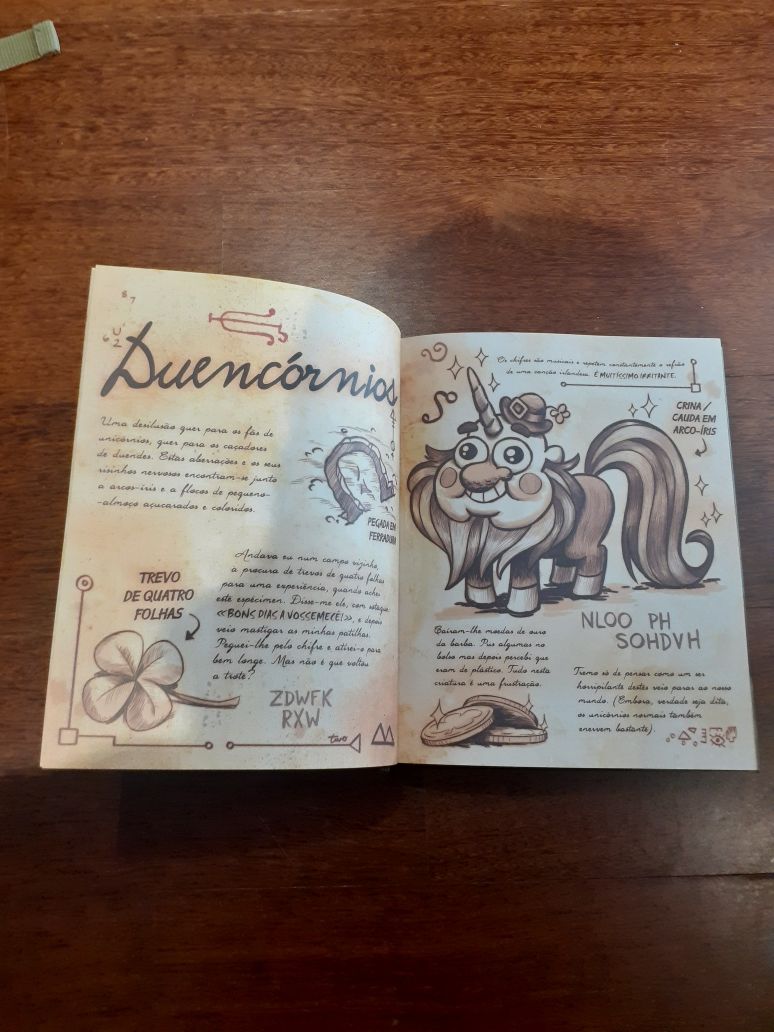 Duencórnios
Uma desilusão quer para os fãs de
unicórnios, quer para os caçadores
de duendes. Estas aberrações e os seus
risinhos nervosos encontram-se junto
a arcos-íris e a flocos de pequeno-
-almoço açucarados e coloridos.
PEGADA EM
FERRADURA
TREVO
DE QUATRO
FOLHAS
Andava eu num campo vizinho,
à procura de trevos de quatro folhas
para uma experiência, quando achei
este espécimen. Disse-me ele, com sotaque
«BONS DIAS A VOSSEMECÊ!», e depois
veio mastigar as minhas patilhas.
Peguei-lhe pelo chifre e atirei-o para
bem longe. Mas não é que voltou
a trote?
ZDWFK
RXW
Os chifres são musicais e repetem constantemente o refrão
de uma canção islandesa. É MUITÍSSIMO IRRITANTE.
CRINA /
CAUDA EM
ARCO-ÍRIS
NLOO PH
SOHDVH
Caíram-lhe moedas de ouro
da barba. Pus algumas no
bolso mas depois percebi que
eram de plástico. Tudo nesta
criatura é uma frustração.
Tremo só de pensar como um ser
horripilante destes veio parar ao nosso
mundo. (Embora, verdade seja dita,
os unicórnios normais também
enervem bastante).